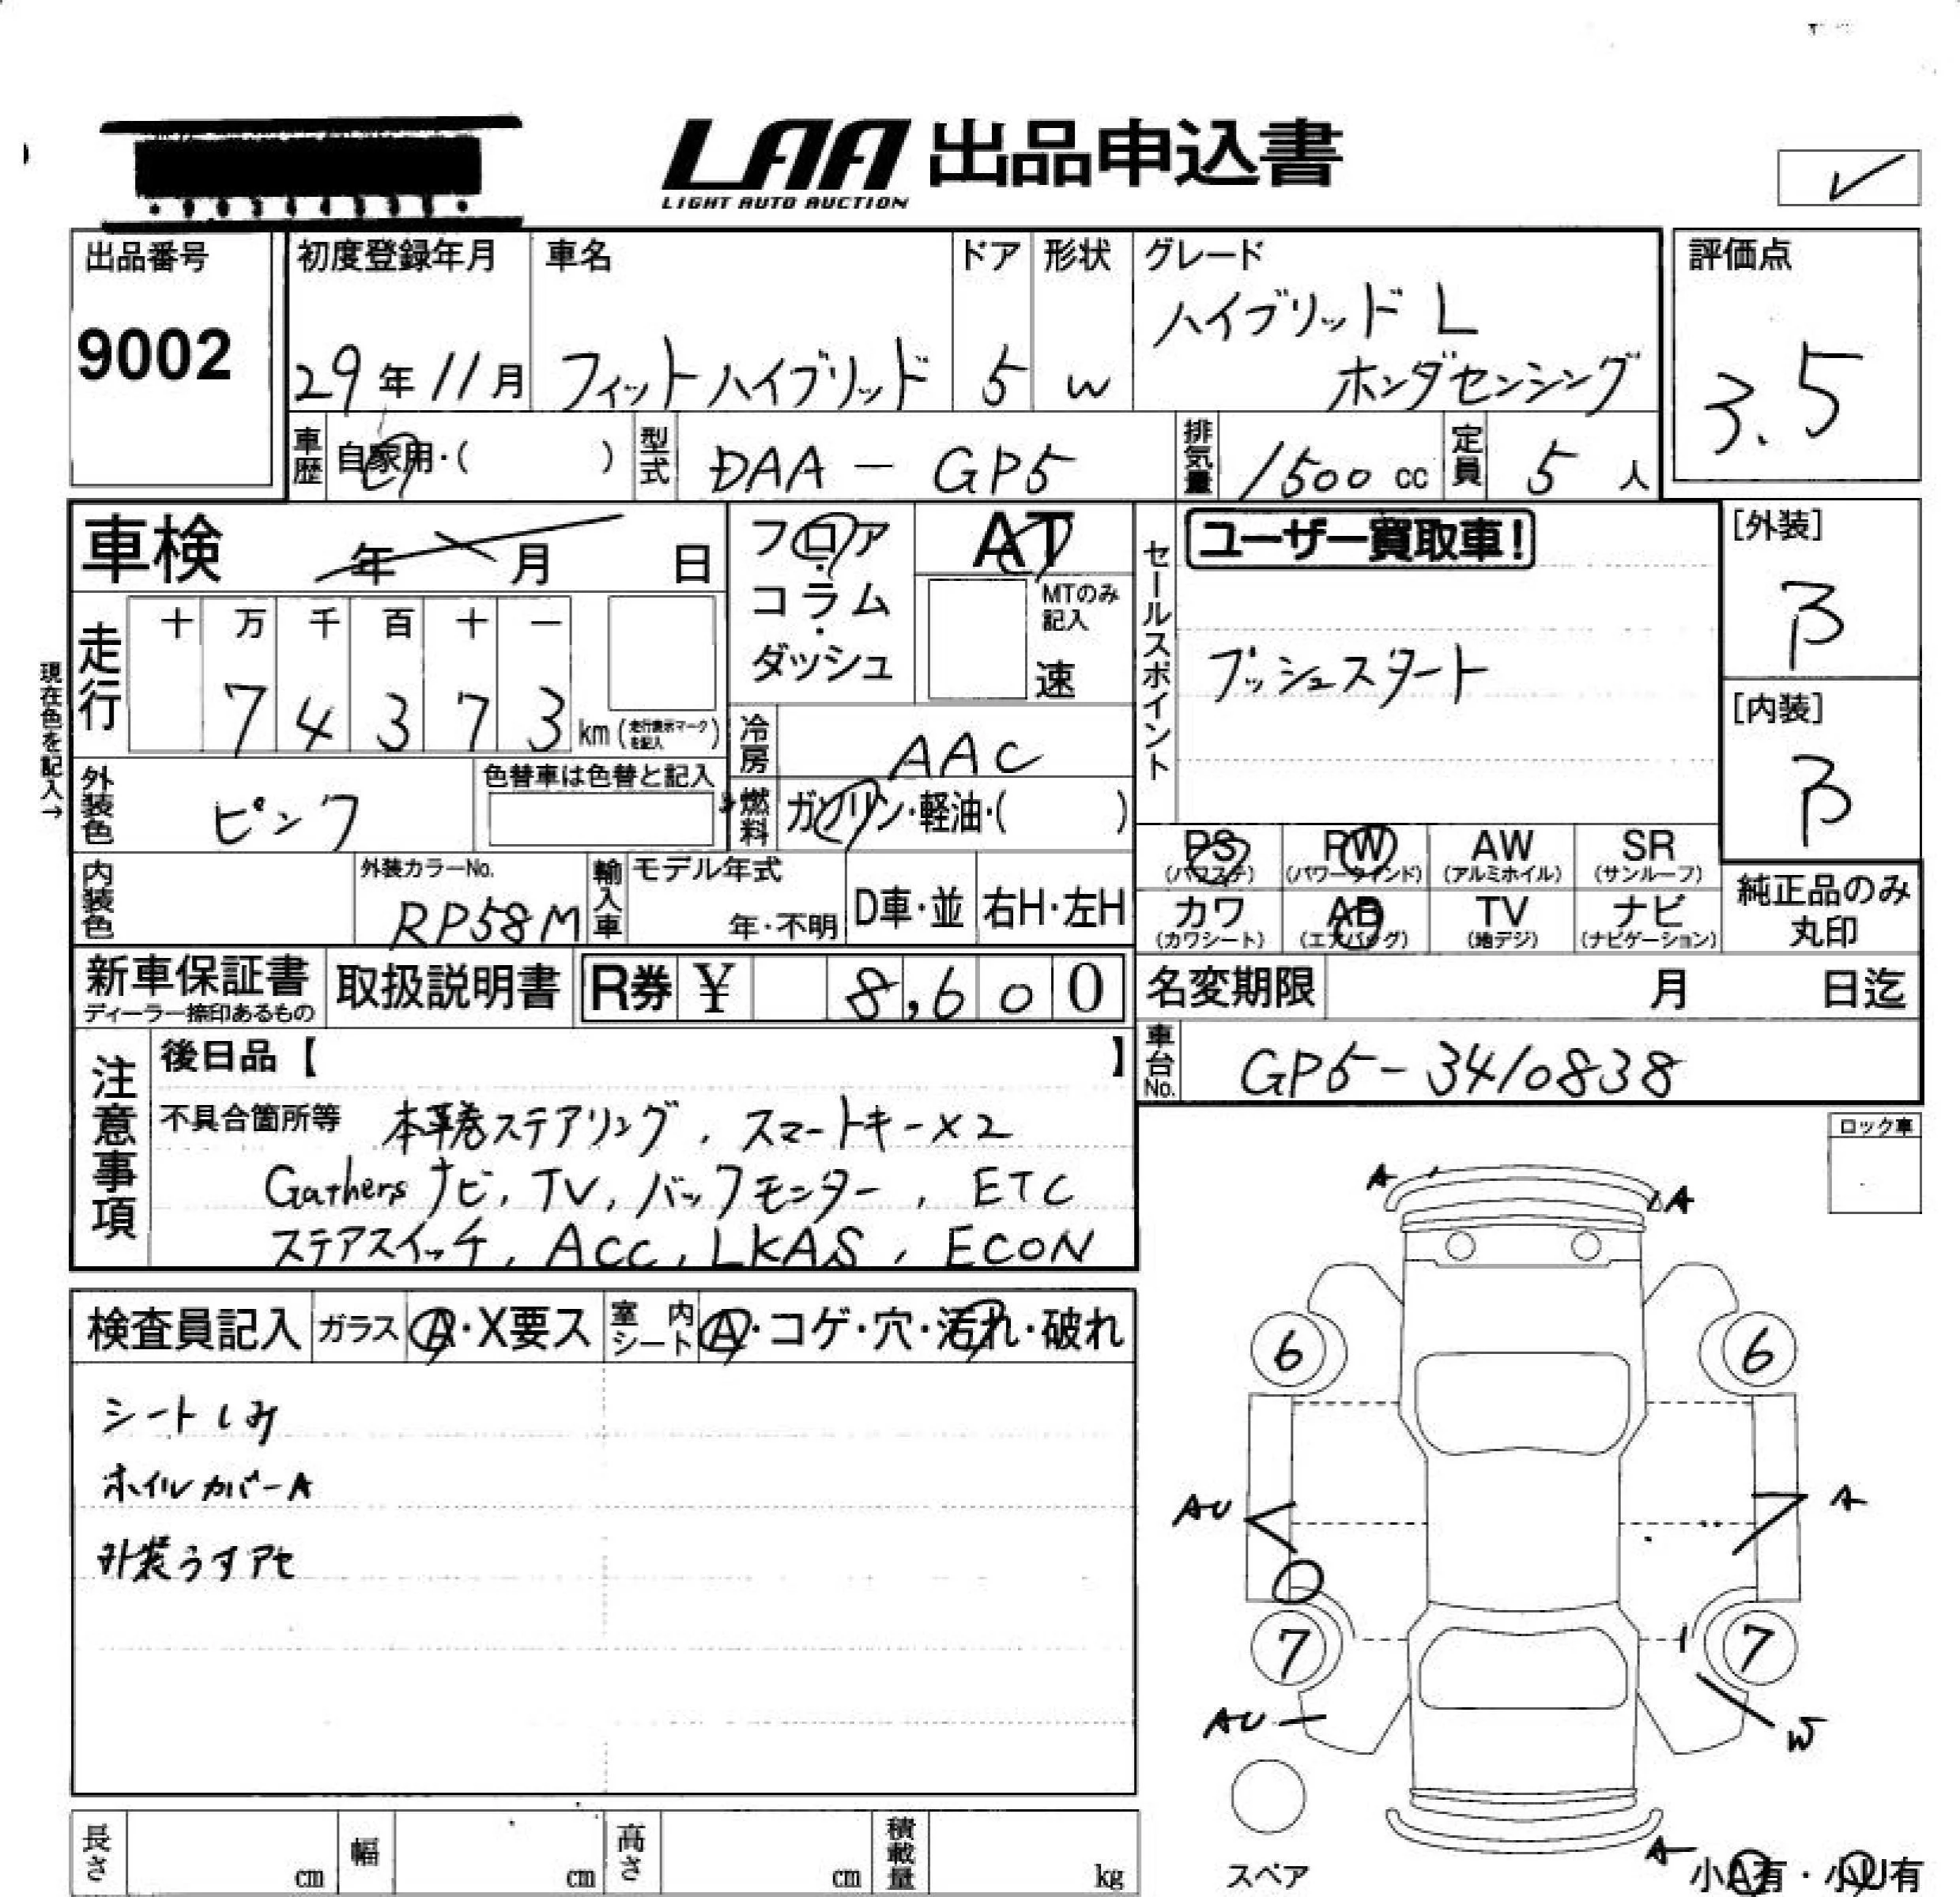 LAA 出品申込書
LIGHT AUTO AUCTION
✓
出品番号
9002
初度登録年月
29年11月
車名
フィットハイブリッド
ドア
5
形状
W
グレード
ハイブリッド L
ホンダセンシング
評価点
3.5
車歴
自家用・( )
型式
DAA - GP5
排気量
1500 cc
定員
5 人
車検
年 月 日
フロア・
コラム・
ダッシュ
AT
MTのみ
記入
速
セールスポイント
ユーザー買取車!
プッシュスタート
[外装]
B
[内装]
B
現在色を記入→
走行
十 万 千 百 十 一
7 4 3 7 3
km (走行表示マークを記入)
冷房
AAC
外装色
ピンク
色替車は色替と記入
燃料
ガソリン・軽油・( )
PS
(パワステ)
PW
(パワーウインド)
AW
(アルミホイル)
SR
(サンルーフ)
カワ
(カワシート)
AB
(エアバッグ)
TV
(地デジ)
ナビ
(ナビゲーション)
純正品のみ
丸印
内装色
外装カラーNo.
RP58M
輸入車
モデル年式
年・不明
D車・並
右H・左H
新車保証書
ディーラー捺印あるもの
取扱説明書
R券 ¥ 8,600
名変期限
月 日迄
車台No.
GP5-3410838
注意事項
後日品【 】
不具合箇所等 本革巻ステアリング, スマートキー×2
Gathersナビ, TV, バックモニター, ETC
ステアスイッチ, ACC, LKAS, ECON
ロック車
A
A
検査員記入
ガラス
A・X要ス
室内シート
A・コゲ・穴・汚れ・破れ
シートしみ
ホイルカバーA
外装うすアセ
6
6
AU
A
7
7
AU
W
スペア
A
小A有・小U有
長さ
cm
幅
cm
高さ
cm
積載量
kg